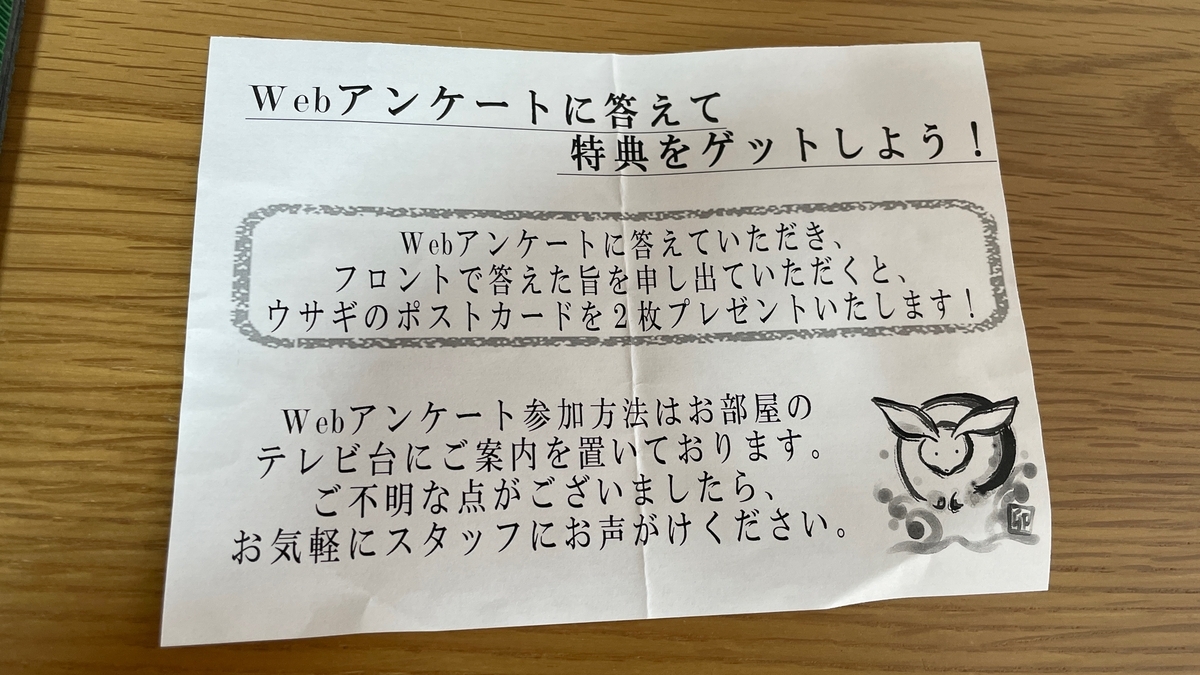 Webアンケートに答えて
特典をゲットしよう！
Webアンケートに答えていただき、
フロントで答えた旨を申し出ていただくと、
ウサギのポストカードを2枚プレゼントいたします！
Webアンケート参加方法はお部屋の
テレビ台にご案内を置いております。
ご不明な点がございましたら、
お気軽にスタッフにお声がけください。
卯